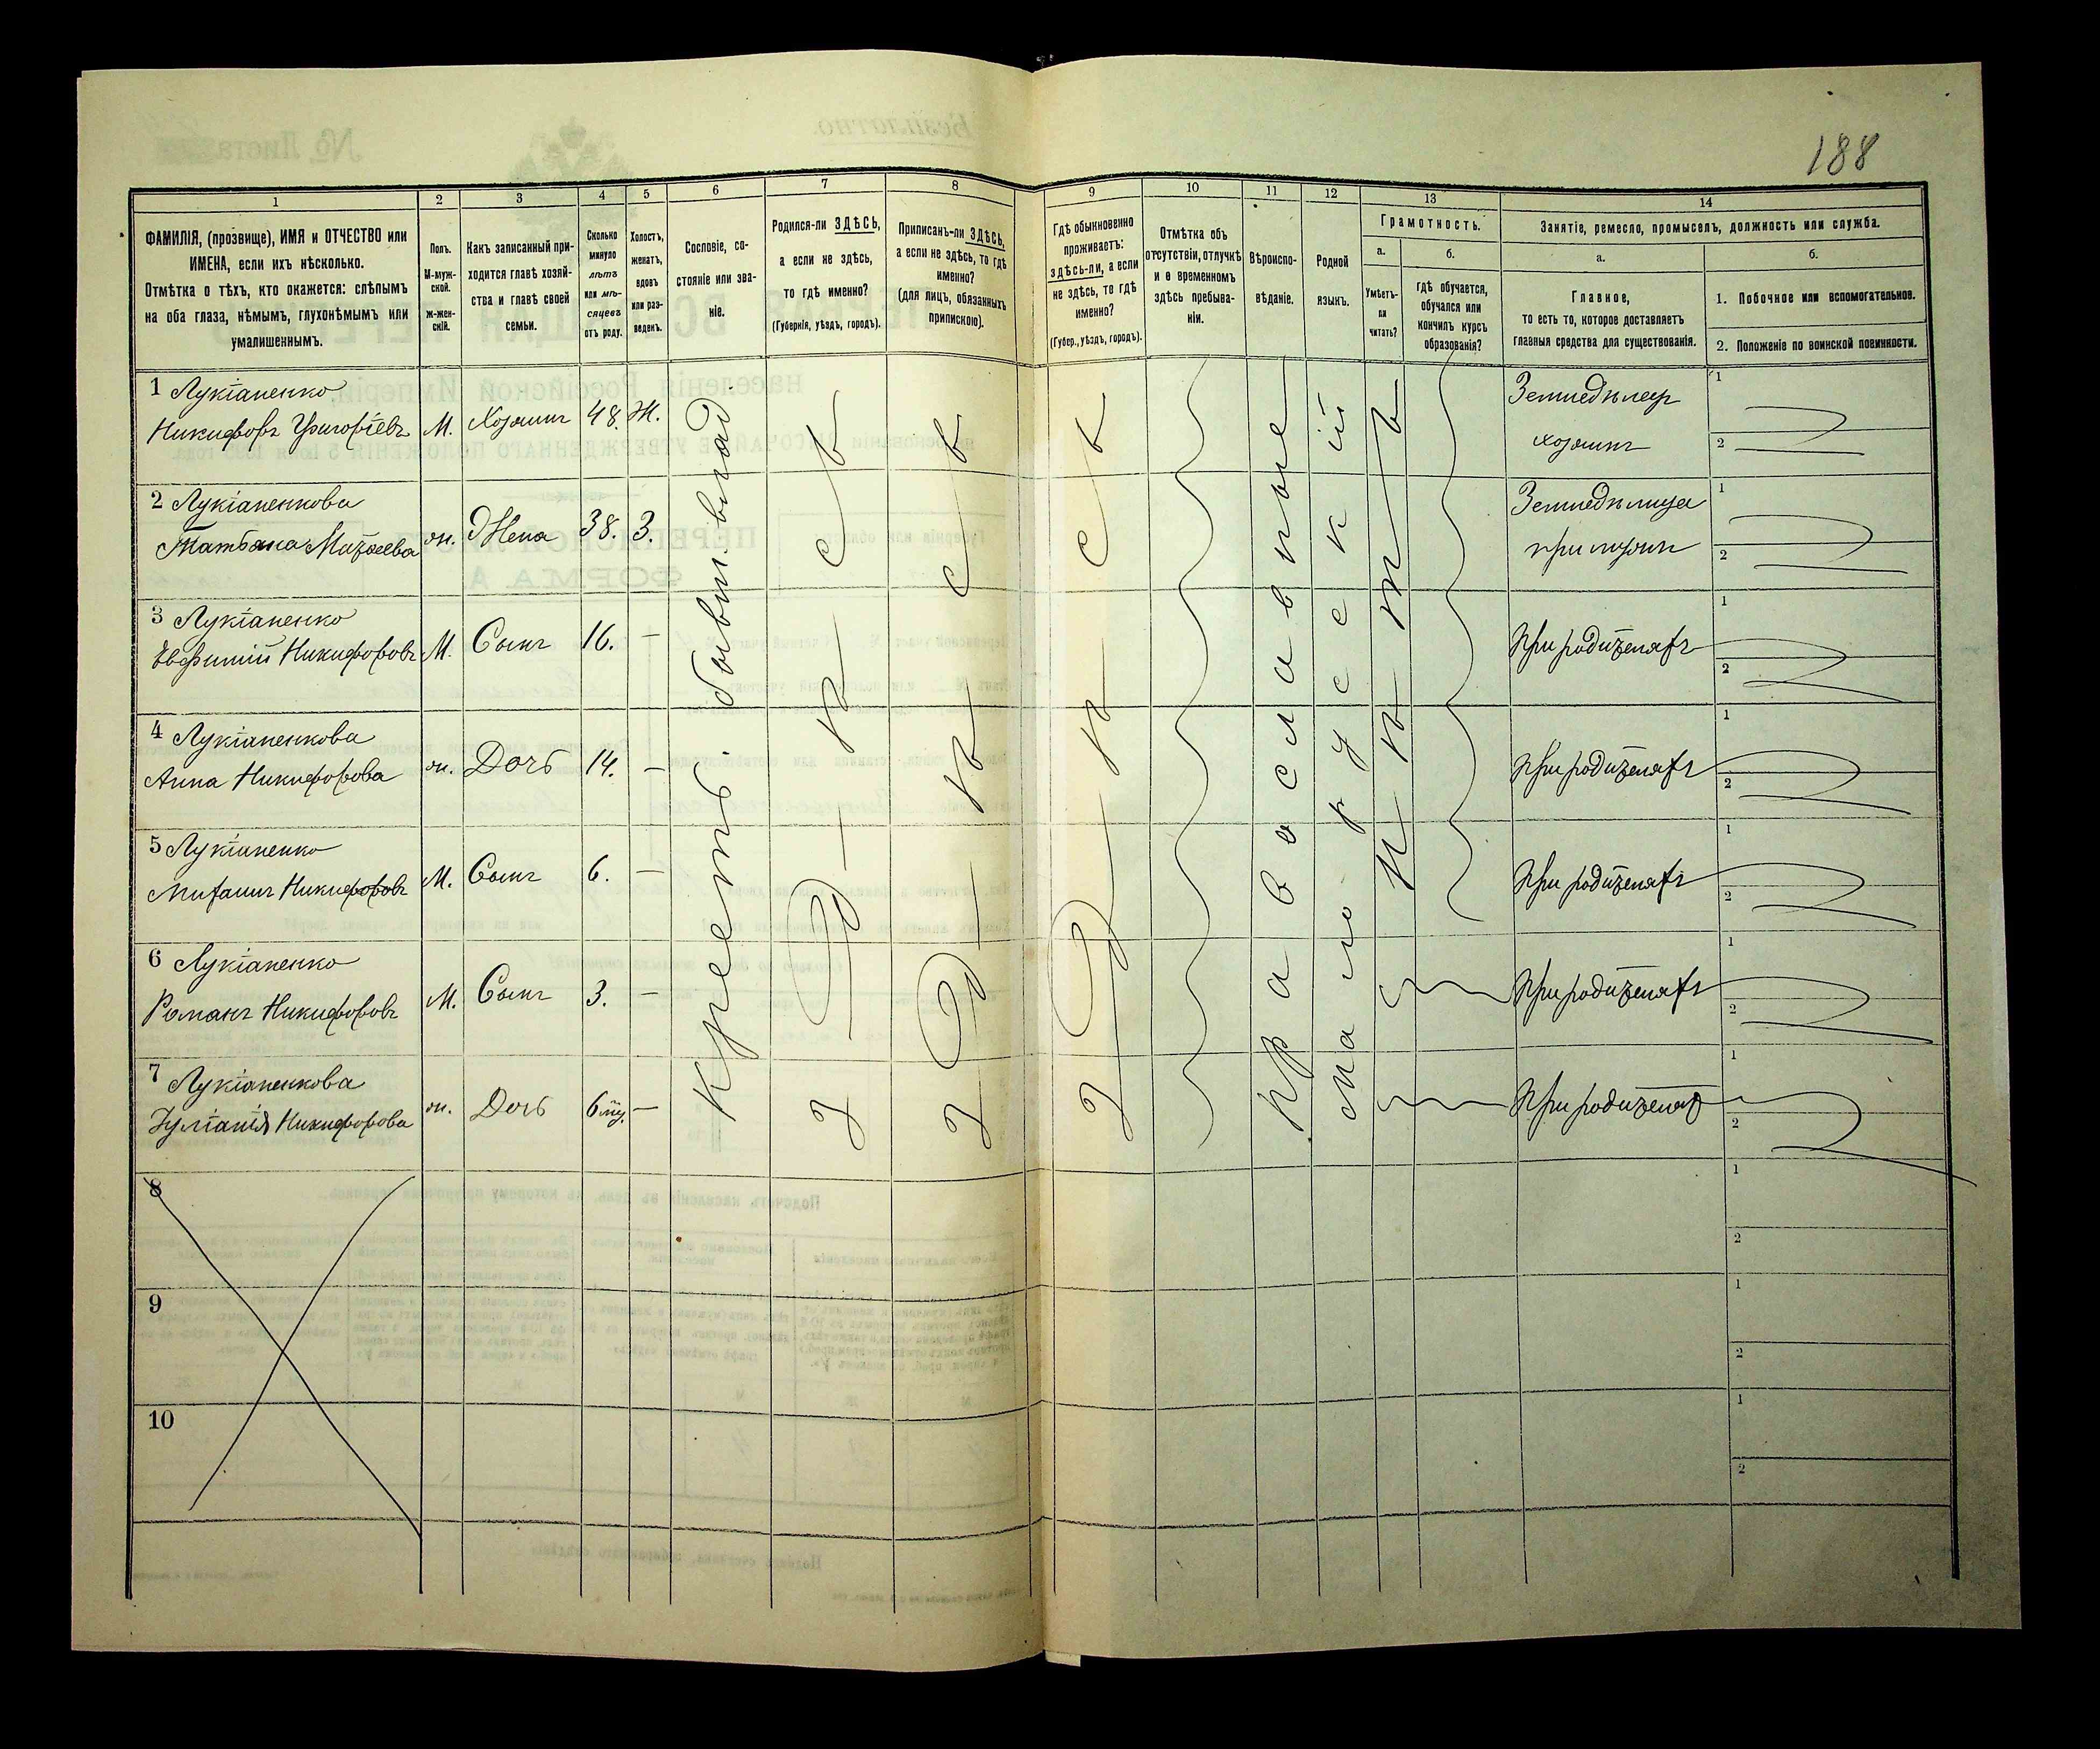 188
1
2
3
4
5
6
7
8
9
10
11
12
13
14
ФАМИЛІЯ, (прозвище), ИМЯ и ОТЧЕСТВО или
ИМЕНА, если ихъ нѣсколько.
Отмѣтка о тѣхъ, кто окажется: слѣпымъ
на оба глаза, нѣмымъ, глухонѣмымъ или
умалишеннымъ.
Полъ.
М-муж-
ской.
Ж-жен-
скій.
Какъ записанный при-
ходится главѣ хозяй-
ства и главѣ своей
семьи.
Сколько
минуло
лѣтъ
или мѣ-
сяцевъ
отъ роду.
Холостъ,
женатъ,
вдовъ
или раз-
веденъ.
Сословіе, со-
стояніе или зва-
ніе.
Родился-ли ЗДѢСЬ,
а если не здѣсь,
то гдѣ именно?
(Губернія, уѣздъ, городъ).
Приписанъ-ли ЗДѢСЬ,
а если не здѣсь, то гдѣ
именно?
(для лицъ, обязанныхъ
припискою).
Гдѣ обыкновенно
проживаетъ:
здѣсь-ли, а если
не здѣсь, то гдѣ
именно?
(Губер., уѣздъ, городъ).
Отмѣтка объ
отсутствіи, отлучкѣ
и о временномъ
здѣсь пребыва-
ніи.
Вѣроиспо-
вѣданіе.
Родной
языкъ.
Грамотность.
а.
Умѣетъ-
ли
читать?
б.
гдѣ обучается,
обучался или
кончилъ курсъ
образованія?
Занятіе, ремесло, промыселъ, должность или служба.
а.
Главное,
то есть то, которое доставляетъ
главныя средства для существованія.
б.
1. Побочное или вспомогательное.
2. Положеніе по воинской повинности.
1 Лукіаненко
Никифоръ Григоріевъ М. Хозяинъ 48. Ж.
Земледѣлец
хозяинъ
1
2
2 Лукіаненкова
Татьяна Матѳеева ж. Жена 38. З.
Земледѣлица
при мужѣ
1
2
3 Лукіаненко
Евфимій Никифоровъ М. Сынъ 16. –
При родителяхъ
1
2
4 Лукіаненкова
Анна Никифорова ж. Дочь 14. –
При родителяхъ
1
2
5 Лукіаненко
Никифоровъ М. Сынъ 6. –
При родителяхъ
1
2
6 Лукіаненко
Романъ Никифоровъ М. Сынъ 3. –
При родителяхъ
1
2
7 Лукіаненкова
Іуліанія Никифорова ж. Дочь 6 –
При родителях
1
2
Крестъ. бывш. влад
Здѣсь
Здѣсь
Здѣсь
Православное
Малорусскій
Нѣтъ
8
1
2
9
1
2
10
1
2